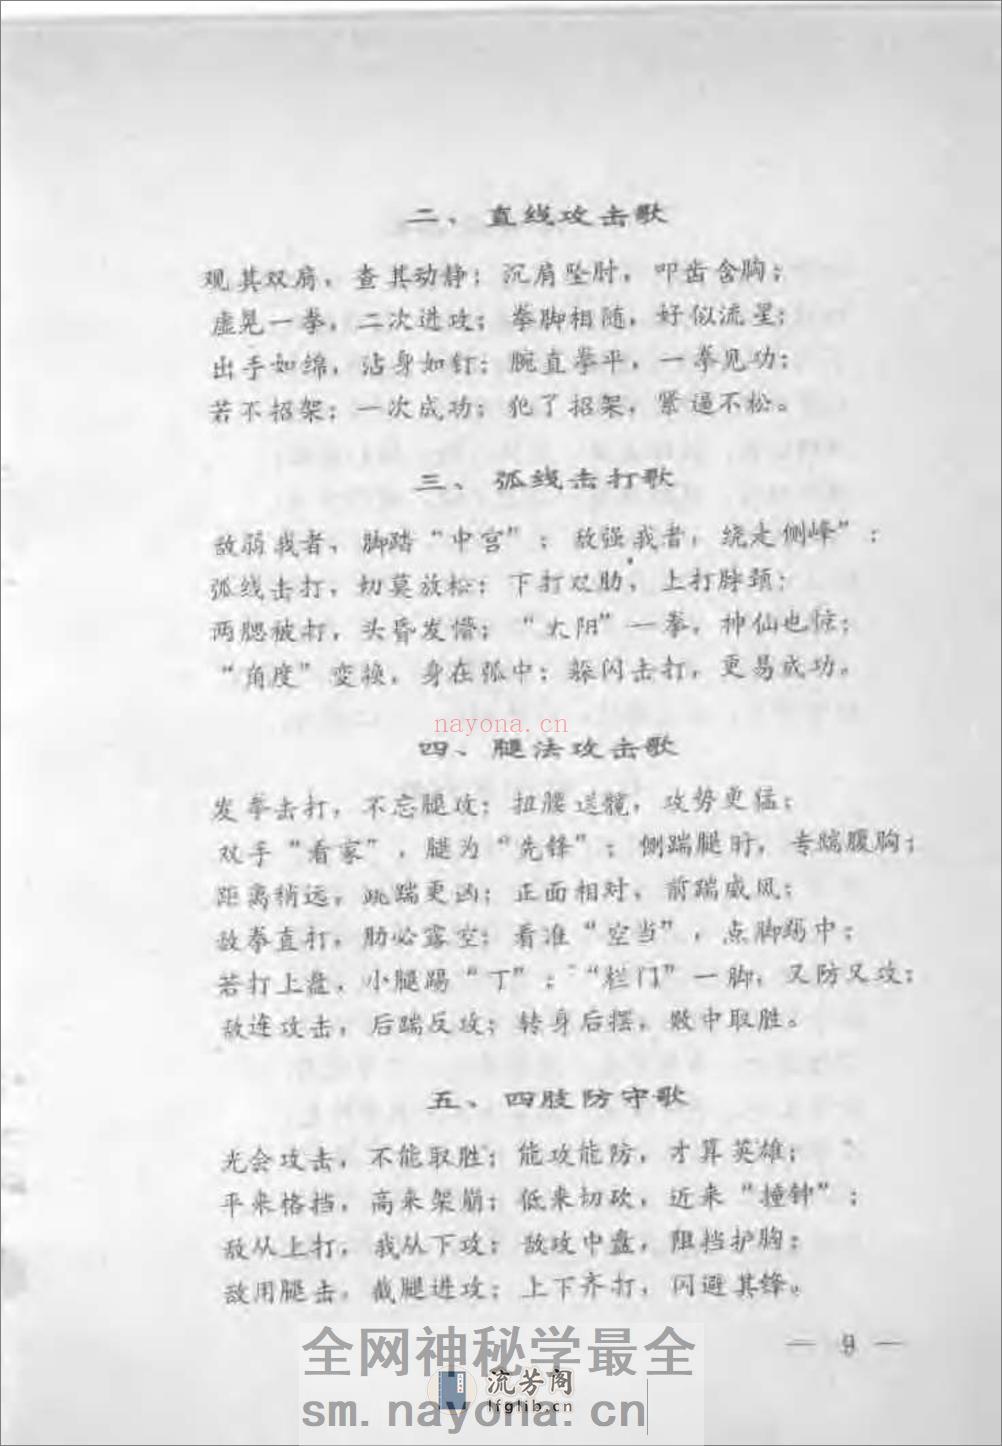 二、直线攻击歌
观其双肩，查其动静；沉肩坠肘，叩齿含胸；
虚晃一拳，二次进攻；拳脚相随，好似流星；
出手如绵，沾身如钉；腕直拳平，一拳见功；
若不招架；一次成功；犯了招架，紧逼不松。
三、弧线击打歌
敌弱我者、脚踏“中宫”；敌强我者，绕走侧峰”；
弧线击打，切莫放松；下打双肋，上打脖颈；
两腮被打，头昏发懵；“太阳”一拳，神仙也惊；
“角度”变换，身在弧中；躲闪击打，更易成功。
nayona.cn
四、腿法攻击歌
发拳击打，不忘腿攻；扭腰送髋，攻势更猛；
双手“看家”，腿为“先锋”；侧踹腿时，专踹腹胸；
距离稍远，跳踹更凶；正面相对，前踹威风；
敌拳直打，肋必露空；看准“空当”，点脚踢中；
若打上盘，小腿踢“丁”；“拦门”一脚，又防又攻；
敌连攻击，后踹反攻；转身后摆，败中取胜。
五、四肢防守歌
光会攻击，不能取胜；能攻能防，才算英雄；
平来格挡，高来架崩；低来切砍，近来“撞钟”；
敌从上打，我从下攻；敌攻中盘，阻挡护胸；
敌用腿击，截腿进攻；上下齐打，闪避其锋。
— 9 —
全网神秘学最全
流芳阁
lfglib.cn
sm.nayona.cn